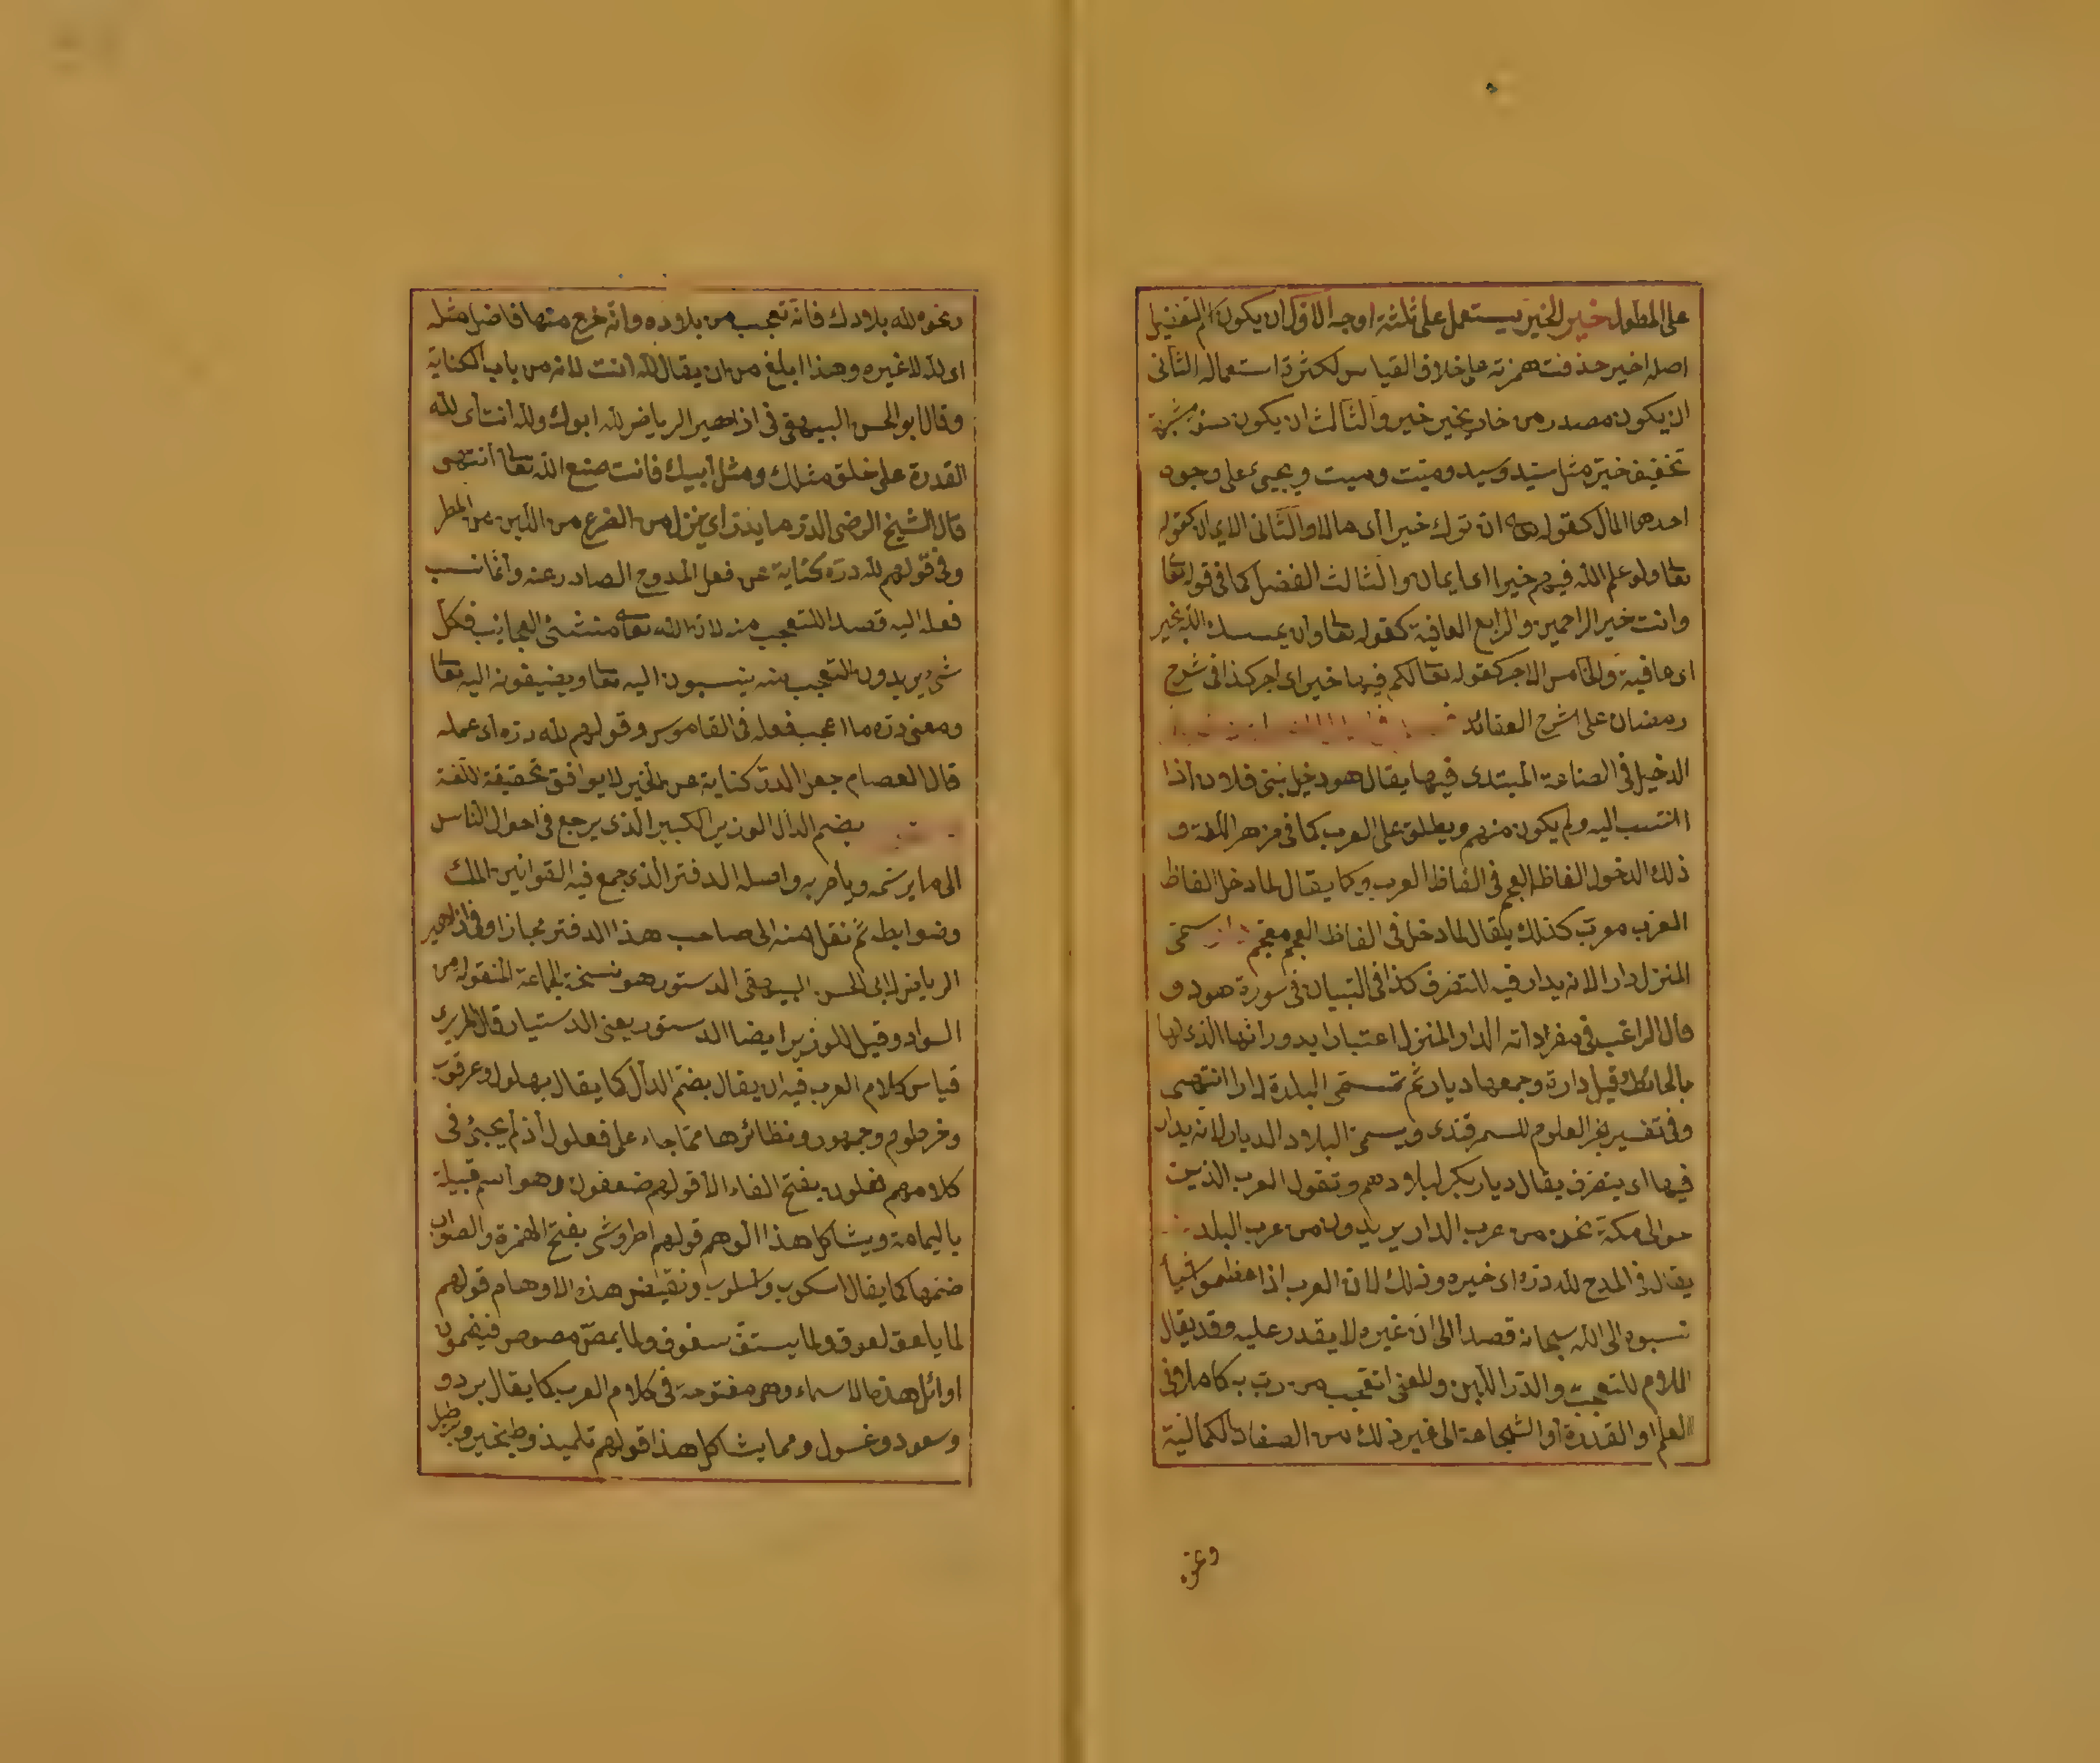 على المطول خير الخير يستعمل على ثلثة اوجه الاول ان يكون اسم التفضيل
اصله اخير حذفت همزته على خلاف القياس لكثرة استعماله الثانى
ان يكون مصدر من خار يخير خير والثالث ان يكون صفة مشبهة
تخفيف خير مثل سيد وسيد وميت وميت ويجيئ على وجوه
احدها المال كقوله ان ترك خيرا أى مالا والثانى الايمان كقوله
تعا ولو علم الله فيهم خيرا اى ايمان والثالث الفضل كما فى قوله تعا
وانت خير الراحمين والرابع العافية كقوله تعا وان يمسسك الله بخير
اى عافية والخامس الاجر كقوله تعا لكم فيها خير اى اجر كذا فى شرح
رمضان على شرح العقائد
الدخيل فى الصناعة المبتدى فيها يقال هو دخيل بنى فلان اذا
انتسب اليه ولم يكون منهم ويطلق على العرب كما فى مزهر اللغة و
ذلك الدخول الفاظ العجم فى الفاظ العرب وكما يقال لما دخل الفاظ
العرب معرب كذلك يقال لما دخل فى الفاظ العجم معجم دار سمى
المنزل دار الانه يدار فيه للتصرف كذا فى التبيان فى سورة هود و
قال الراغب فى مفرداته الدار المنزل اعتبارا بدورانها الذى لها
بالحائط وقيل دارة وجمعها ديار ثم تسمى البلدة دارا انتهى
وفى تفسير بحر العلوم للسمرقندى ويسمى البلاد الديار لانه يدار
فيها اى يتصرف يقال ديار بكر لبلادهم وتقول العرب الذين
حوالى مكة نحن من عرب الدار يريدون من عرب البلد
يقال فى المدح لله دره اى خيره وذلك لان العرب اذا عظموا شيأ
نسبوه الى الله سبحانه قصدا الى ان غيره لا يقدر عليه وقد يقال
اللام للتعجب والدر اللبن والمعنى اتعجب من رتبه كاملا فى
العلم او القدرة او الشجاعة الى غير ذلك من الصفات الكمالية
ونحوه
ونحوه لله بلادك فانه تعجب من بلاده وانه خرج منها فاضل مثله
اى لله لا غيره وهذا ابلغ من ان يقال لله انت لانه من باب الكناية
وقال ابو الحسن البيهقى فى ازاهير الرياض لله ابوك ولله انت أى لله
القدرة على خلق مثلك ومثل أبيك فانت صنع الله تعا انتهى
قال الشيخ الرضى الدر ما يدر اى ينزل من الضرع من اللبن من المطر
وفى قولهم لله دره كناية عن فعل الممدوح الصادر عنه وانما نسب
فعله اليه قصدا للتعجب منه لان الله تعا منشئ العجائب فكل
شئ يريدون التعجب منه ينسبون اليه تعا ويضيفونه اليه تعا
ومعنى دره ما اعجب فعله فى القاموس وقولهم لله دره اى عمله
قال العصام جعل الدر كناية عن الخير لا يوافق تحقيقه اللغة
بضم الدال الوزير الكبير الذى يرجع فى احوال الناس
الى ما يرسمه ويأمر به واصله الدفتر الذى جمع فيه القوانين الملك
وضوابطه ثم نقل منه الى صاحب هذا الدفتر مجازا وفى ازاهير
الرياض لابى الحسن البيهقى الدستور هو نسخة الجماعة المنقوله من
السواد وقيل للوزير ايضا الدستور يعنى الدستيار قال الحريرى
قياس كلام العرب فيه ان يقال بضم الدال كما يقال بهلول وعرقوب
وخرطوم وجمهور ونظائرها مما جاء على فعلول اذ لم يجئ فى
كلامهم فعلول بفتح الفاء الا قولهم صعفوق وهو اسم قبيلة
باليمامة ويشاكل هذا الوهم قولهم اطروش بفتح الهمزة والصواب
ضمها كما يقال اسكوب واسلوب ونقيض هذه الاوهام قولهم
لما يلعق لعوق ولما يستف سفوف ولما يمص مصوص فيضمون
اوائل هذه الاسماء وهى مفتوحة فى كلام العرب كما يقال برود
وسعود وغسول ومما يشاكل هذا قولهم تلميذ وطنجير وبرطيل